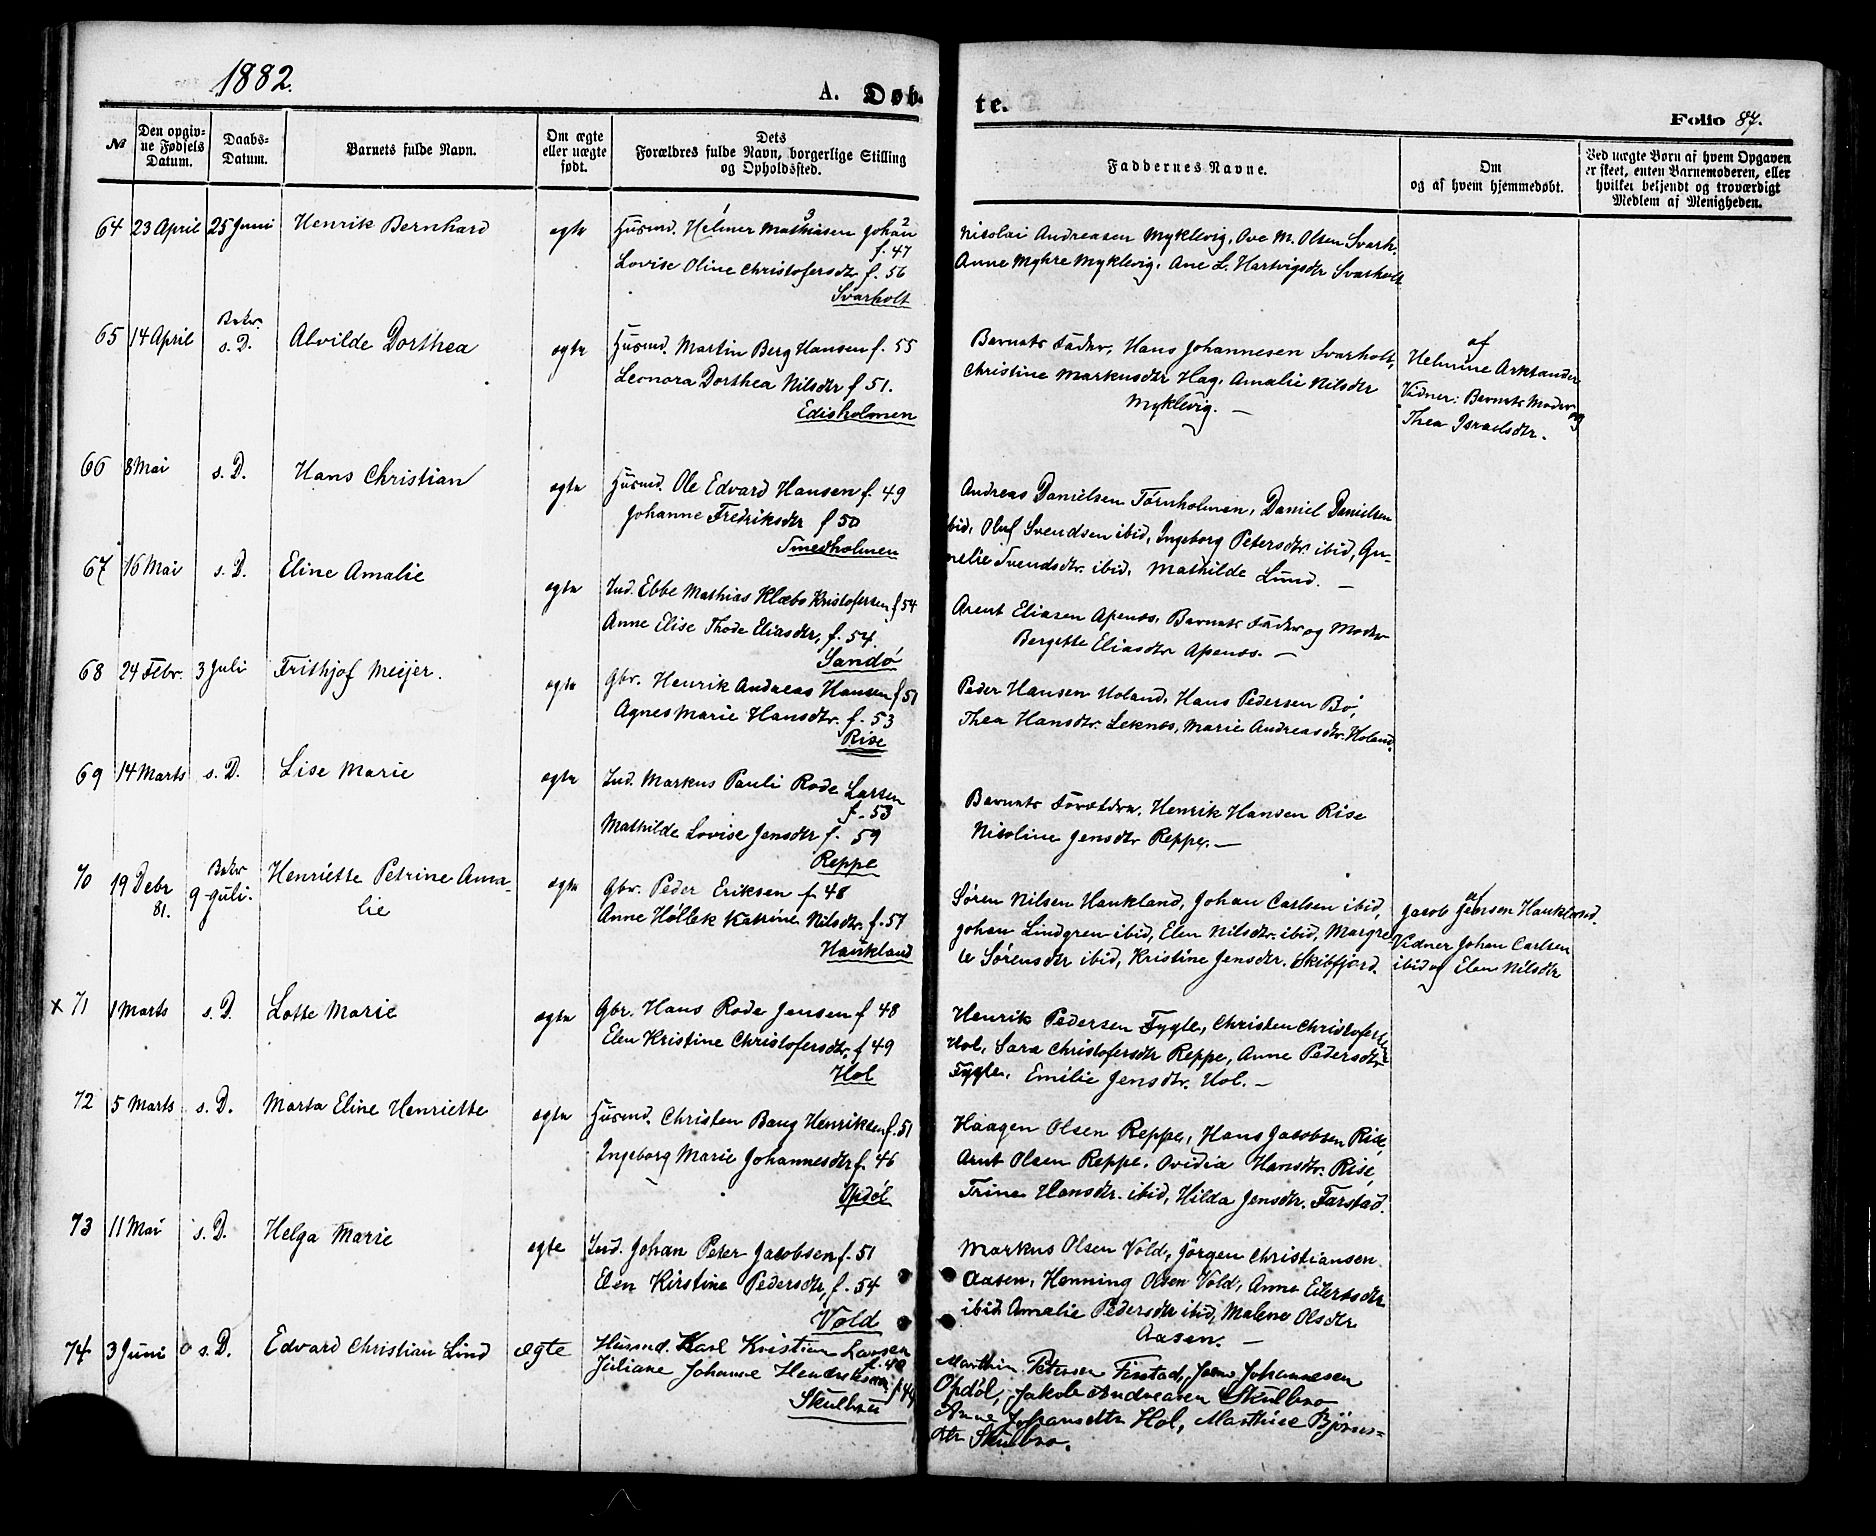 1882.
A. Døb-
te.
Folio 87.
№ | Den opgiv- ne Fødsels Datum. | Daabs- Datum. | Barnets fulde Navn. | Om ægte eller uægte født. | Dets Forældres fulde Navn, borgerlige Stilling og Opholdssted. | Faddernes Navne. | Om og af hvem hjemmedøbt. | Ved uægte Børn af hvem Opgaven er skeet, enten Barnemoderen, eller hvilket beljendt og troværdigt Medlem af Menigheden.
64 23 April 25 Juni Henrik Bernhard ægte Husmd. Helmer Mathiasen Johan
f. 47
Lovise Oline Christofersdtr f. 56
Svarholt
Nicolai Andreasen Myklevig, Ove M. Olsen Svarh.
Anne Myhre Myklevig, Ane L. Hartvigsdtr Svarholt
65 14 April Bekr. s. D. Alvilde Dorthea ægte Husmd. Martin Berg Hansen f. 55
Leonora Dorthea Nilsdtr f 51.
Edisholmen
Barnets Fader, Hans Johannesen Svarholt,
Christine Markusdtr Hag, Amalie Nilsdtr
Myklevig. —
af
Helmine Arktander
Vidner: Barnets Moder og
Thea Israelsdtr.
66 8 Mai s. D. Hans Christian ægte Husmd. Ole Edvard Hansen f. 49
Johanne Fredriksdtr f 50
Smedholmen
Andreas Danielsen Tørnholmen, Daniel Danielsen
ibid, Oluf Svendsen ibid, Ingeborg Petersdtr. ibid, Gu-
nelie Svendsdtr. ibid, Mathilde Lund. —
67 16 Mai s. D. Eline Amalie ægte Ind. Ebbe Mathias Klæbo Kristofersen f 54
Anne Elise Thode Eliasdtr, f. 54.
Sandø
Arent Eliasen Apenes, Barnets Fader og Moder
Bergette Eliasdtr Apenes. —
68 24 Febr. 3 Juli Frithjof Meijer. ægte Gbr. Henrik Andreas Hansen f 51
Agnes Marie Hansdtr. f. 53
Rise
Peder Hansen Holand, Hans Pedersen Bø,
Thea Hansdtr. Leknes, Marie Andreasdtr. Holand.
69 14 Marts s. D. Lise Marie ægte Ind. Markus Pauli Rode Larsen
f. 53
Mathilde Lovise Jensdtr f. 59
Reppe
Barnets Forældre, Henrik Hansen Rise
Nicoline Jensdtr Reppe. —
70 19 Decbr 81. Bekr 9 Juli. Henriette Petrine Ama-
lie
ægte Gbr. Peder Eriksen f. 48
Anne Høllek Katrine Nilsdtr. f. 57
Haukland
Søren Nilsen Haukland, Johan Carlsen ibid,
Johan Lindgren ibid, Elen Nilsdtr. ibid, Margre-
te Sørensdtr ibid, Kristine Jensdtr. Skibfjord.
af
Jacob Jensen Haukland.
Vidner Johan Carlsen
ibid og Elen Nilsdtr
x 71 1 Marts s. D. Lotte Marie ægte Gbr. Hans Rode Jensen f 48
Elen Kristine Christofersdtr. f 49
Hol
Henrik Pedersen Fygle, Christen Christofersen
Hol, Sara Christofersdtr Reppe, Anne Pedersdtr
Fygle, Emilie Jensdtr. Hol. —
72 5 Marts s. D. Marta Eline Henriette ægte Husmd. Christen Bang Henriksen f. 51
Ingeborg Marie Johannesdtr f. 46
Opdøl
Haagen Olsen Reppe, Hans Jacobsen Rise,
Arnt Olsen Reppe, Ovidia Hansdtr. Rise,
Trine Hansdtr. ibid, Hilda Jensdtr. Farstad.
73 11 Mai s. D. Helga Marie ægte Ind. Johan Peter Jacobsen f. 51
Elen Kirstine Pedersdtr, f. 54
Vold
Markus Olsen Vold, Jørgen Christiansen
Aasen, Henning Olsen Vold, Anne Eilertsdtr
ibid Amalie Pedersdtr ibid, Malene Olsdtr
Aasen. —
74 3 Juni s. D. Edvard Christian Lind ægte Husmd. Karl Kristian Larsen
f. 48
Juliane Johanne Hendriksen f 44
Skulbru
Marthin Petersen Finstad, Jens Johannesen
Opdøl, Jakob Andreasen Skulbro
Anne Johansdtr Hol, Marthise Bjørns=
dtr Skulbro.